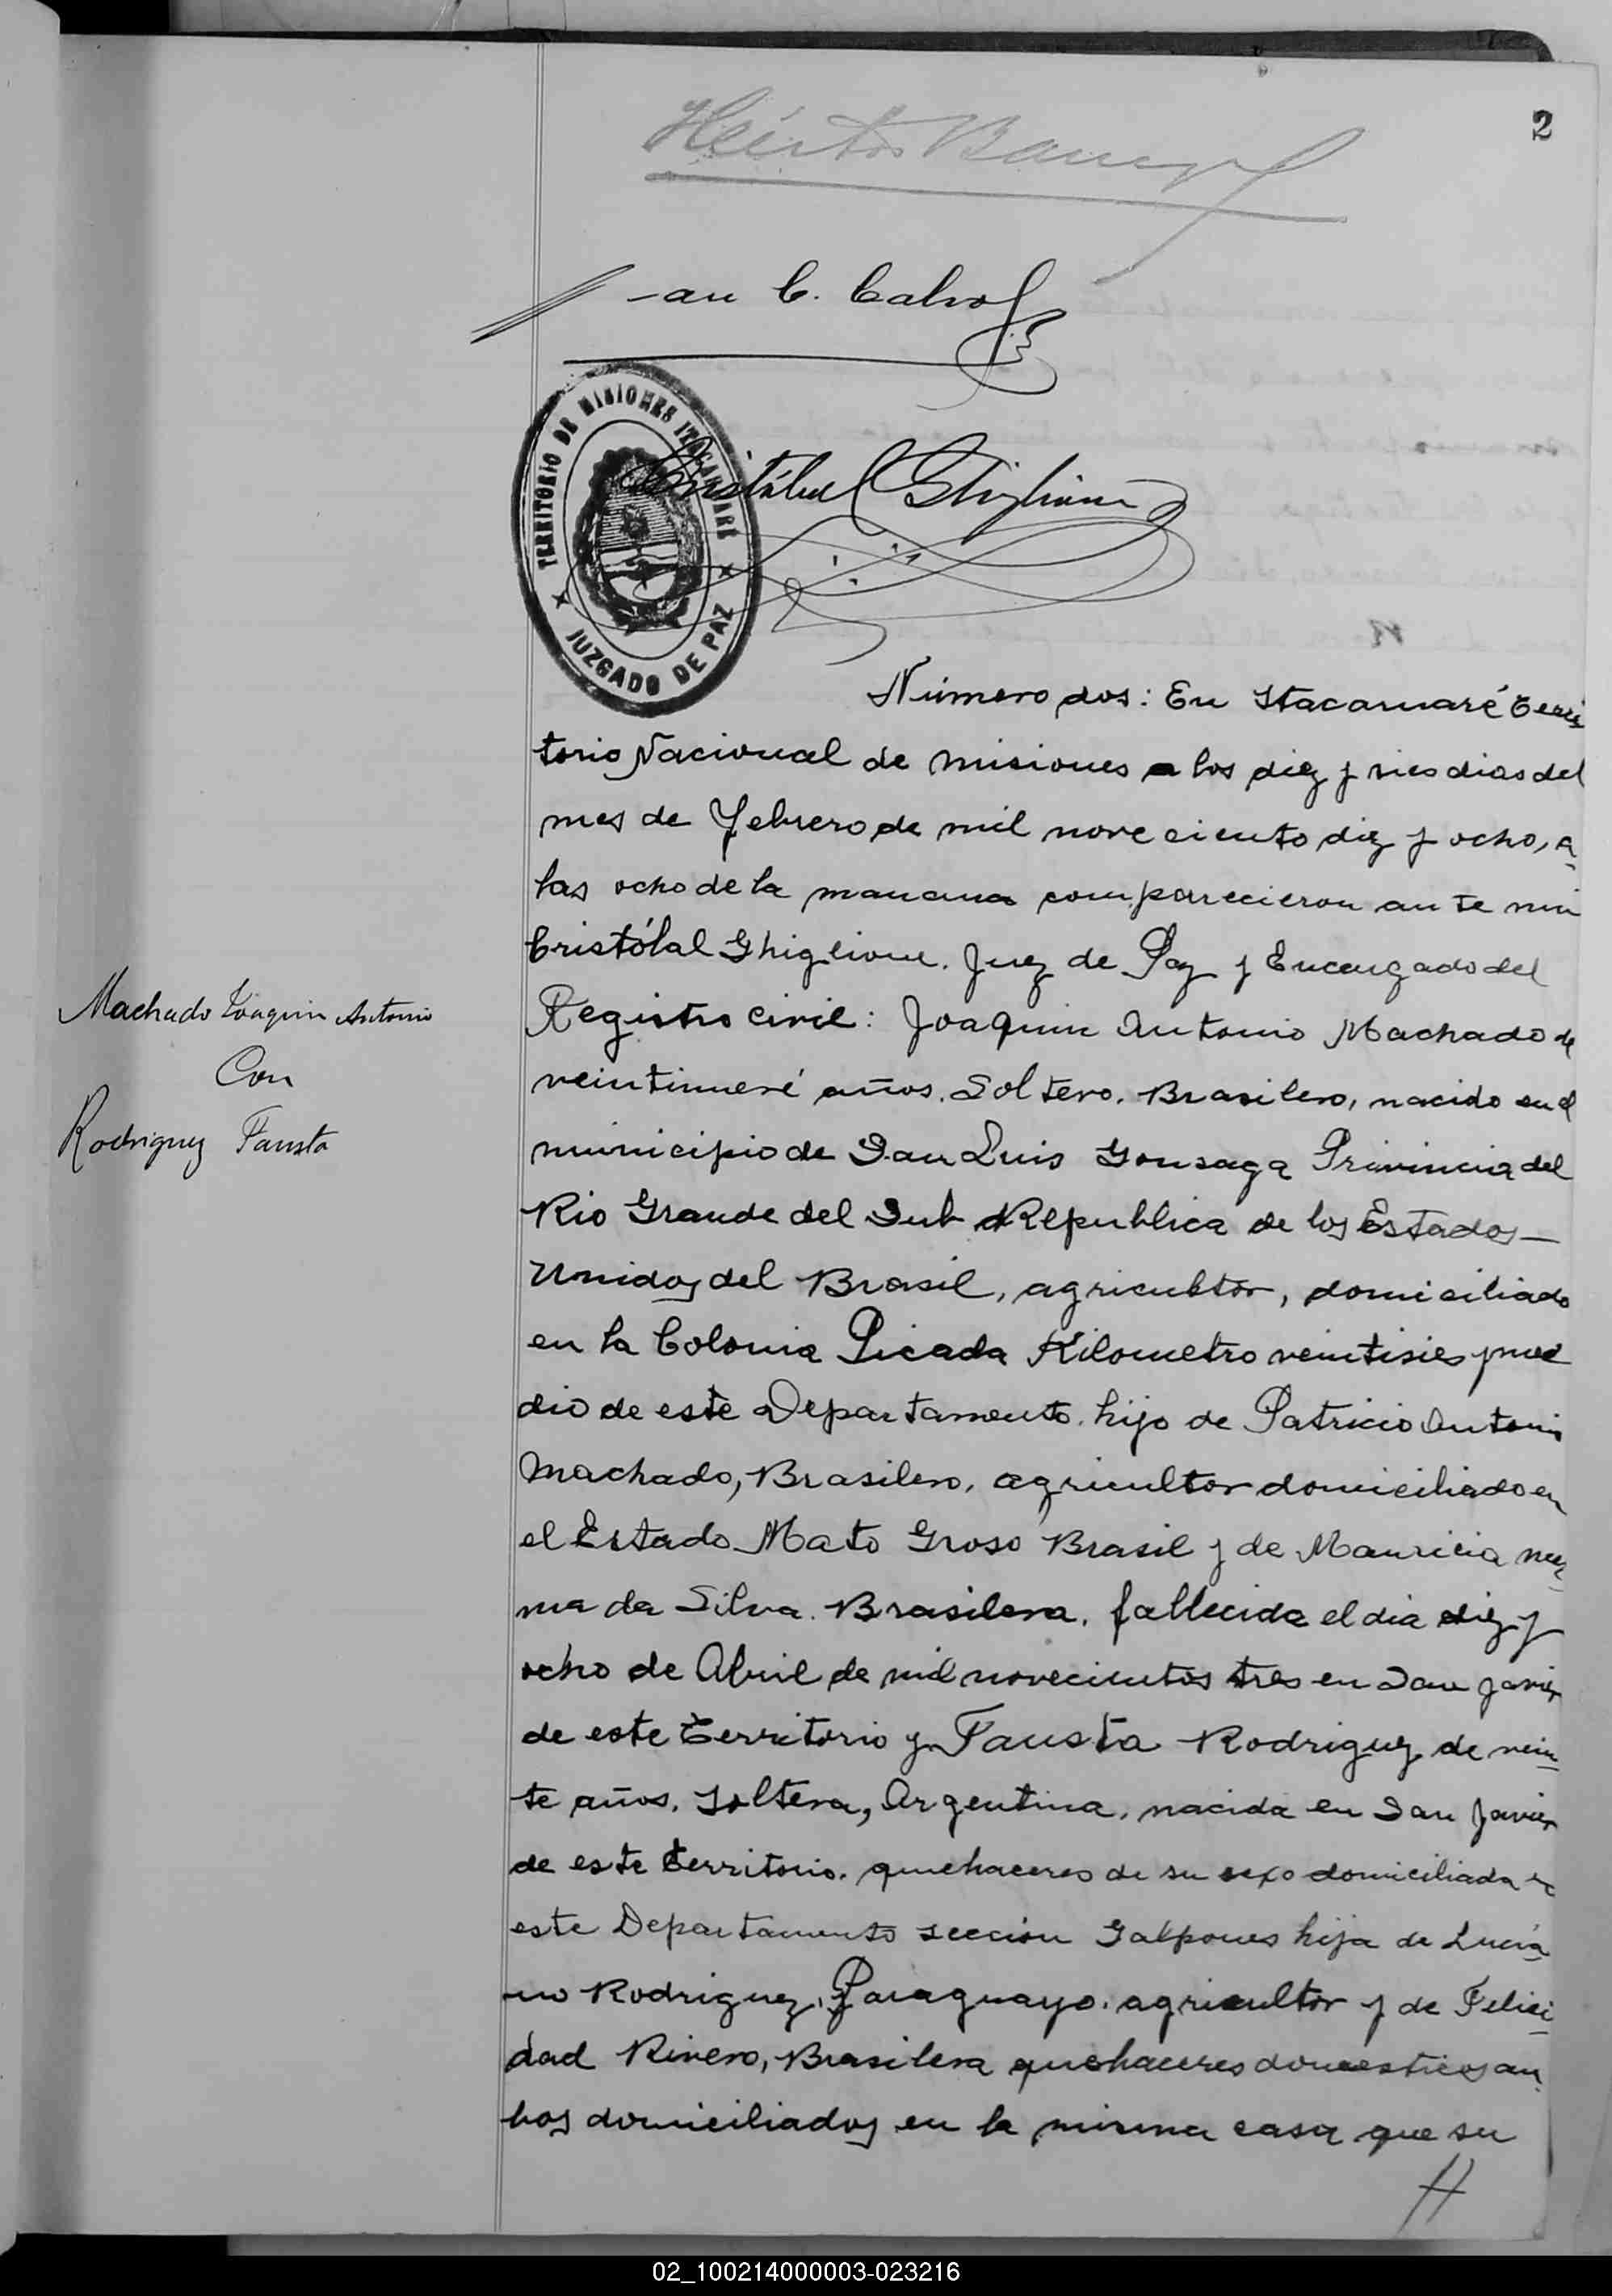 2
Juan C. Calvo
TERRITORIO DE MISIONES ITACARUARÉ
JUZGADO DE PAZ
Cristóbal Ghiglione
Número dos: En Itacaruaré Terri
torio Nacional de Misiones a los diez y seis dias del
mes de Febrero de mil nove ciento diez y ocho, a
las ocho de la manana comparecieron an te mi
Cristóbal Ghiglione. Juez de Paz y Encargado del
Registro Civil: Joaquin Antonio Machado de
veintinueve años. Soltero. Brasilero, nacido en el
municipio de San Luis Gonsaga Provincia del
Rio Grande del Sul Republica de los Estados—
Unidos del Brasil, agricultor, domiciliado
en la Colonia Picada Kilometro veintisies y me
dio de este Departamento. hijo de Patricio Antonio
Machado, Brasilero, agricultor domiciliado en
el Estado Mato Groso Brasil y de Mauricia
da Silva. Brasilera. fallecida el dia diez y
ocho de Abril de mil novecientos tres en San Javier
de este Territorio y Fausta Rodriguez de vein
te años. Soltera, Argentina, nacida en San Javier
de este Territorio. quehaceres de su sexo domiciliada en
este Departamento seccion Galpones hija de Lucia
no Rodriguez, Paraguayo. agricultor y de Felici
dad Rivero, Brasilera quehaceres domesticos am
bos domiciliados en la misma casa que su
Machado Joaquin Antonio
Con
Rodriguez Fausta
02_100214000003-023216